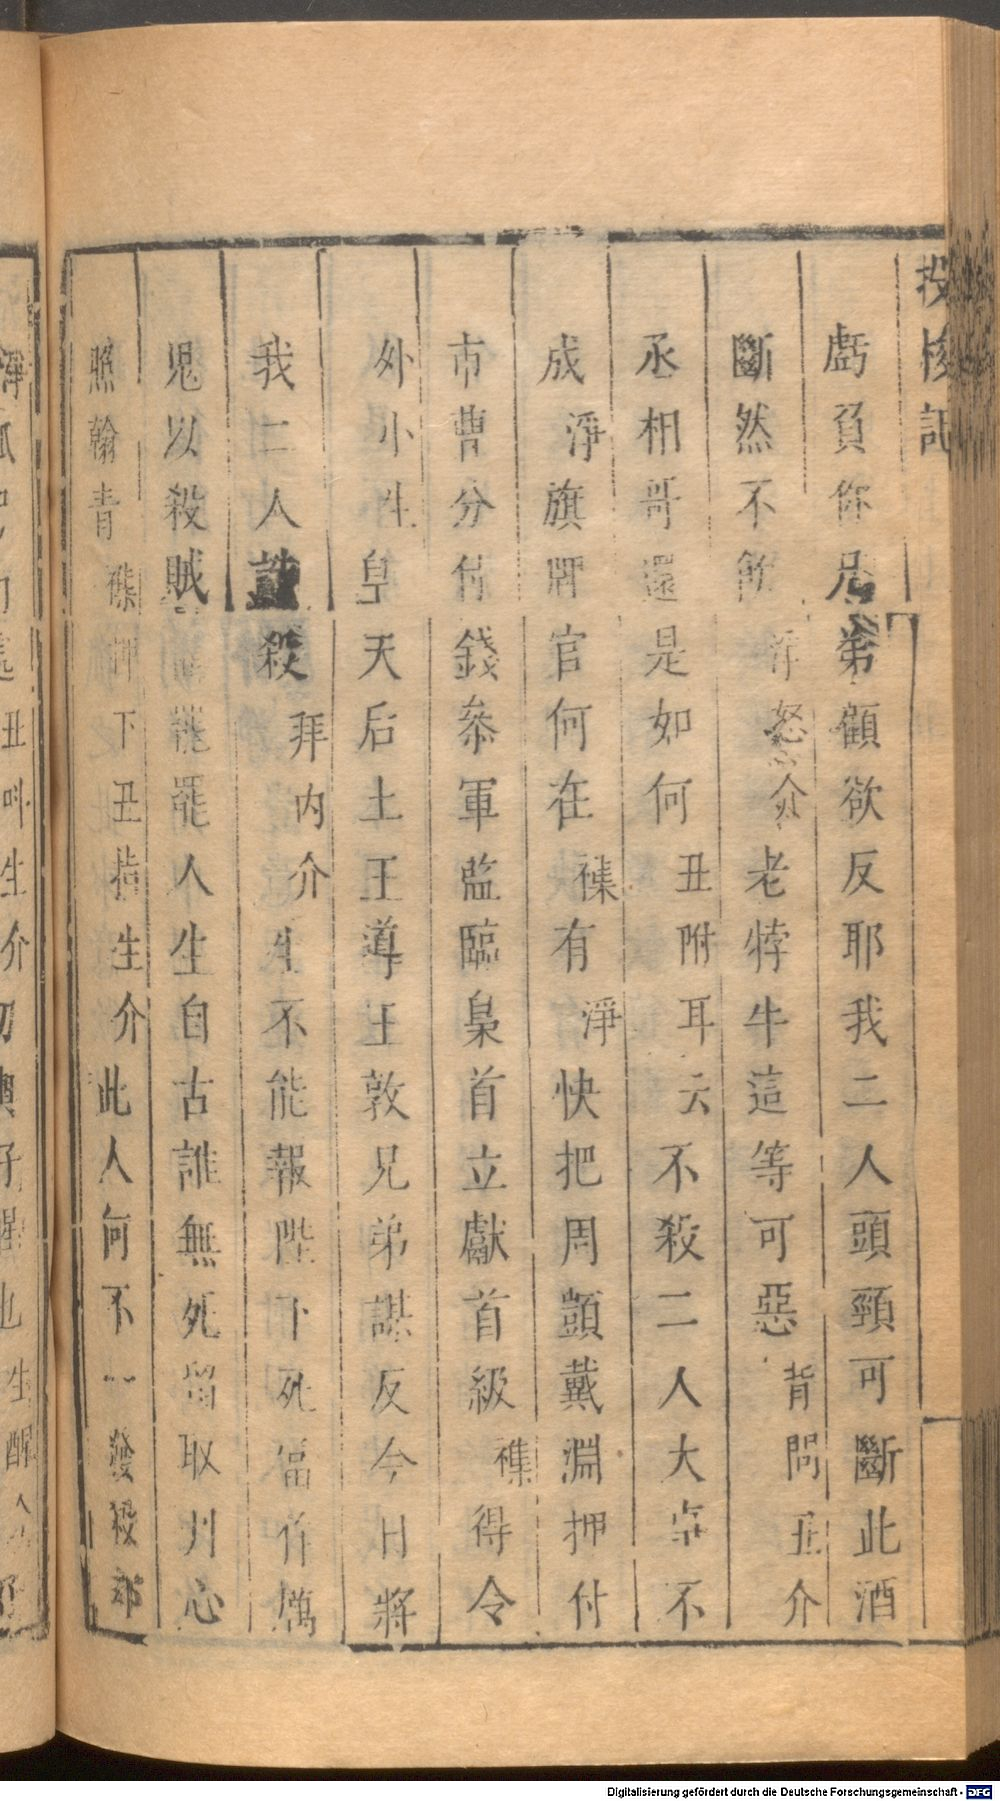 投梭記
虧負你兄弟顧欲反耶我二人頭頸可斷此酒
斷然不飲淨怒介老悖牛這等可惡背問丑介
丞相哥還是如何丑附耳云不殺二人大事不
成淨旗牌官何在襍有淨快把周顗戴淵押付
市曹分付錢叅軍監臨梟首立獻首級襍得令
外小生皇天后土王導王敦兄弟謀反今日將
我二人誅殺拜内介生不能報陛下死當作厲
鬼以殺賊罷罷人生自古誰無死留取丹心
照翰青襍押下丑指生介此人何不一發殺却
Digitalisierung gefördert durch die Deutsche Forschungsgemeinschaft - DFG